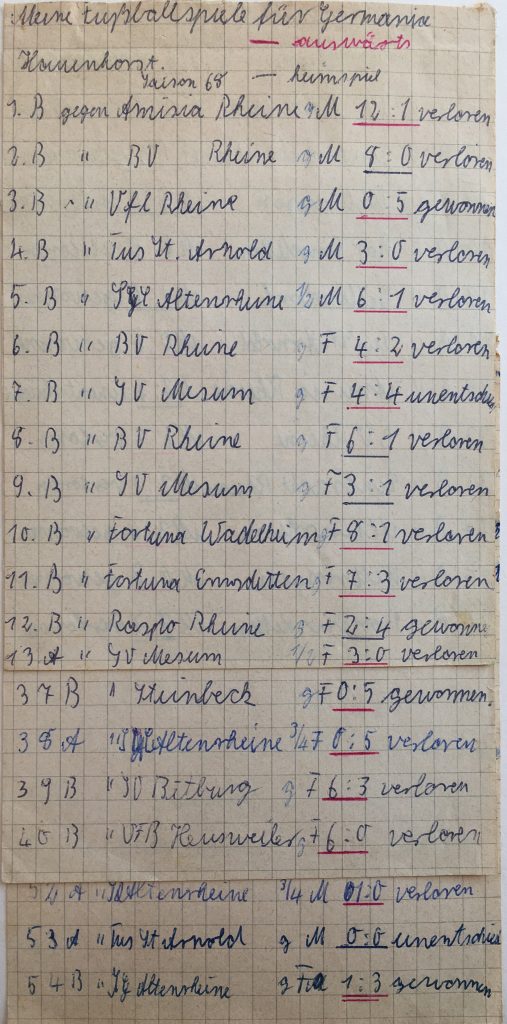 Meine Fußballspiele für Germania
— auswärts
Hauenhorst.
Saison 68 — heimspiel
1. B gegen Amisia Rheine g M 12:1 verloren
2. B " BV Rheine g M 8:0 verloren
3. B " Vfl Rheine g M 0:5 gewonnen
4. B " Tus St. Arnold g M 3:0 verloren
5. B " Altenrheine ½ M 6:1 verloren
6. B " BV Rheine g F 4:2 verloren
7. B " SV Mesum g F 4:4 unentschie
8. B " BV Rheine g F 6:1 verloren
9. B " SV Mesum g F 3:1 verloren
10. B " Fortuna Wadelheim g F 8:1 verloren
11. B " Fortuna Emsdetten g F 7:3 verloren
12. B " Raspo Rheine g F 2:4 gewonne
13 A " SV Mesum 1/2 F 3:0 verloren
37 B " Steinbeck g F 0:5 gewonnen.
38 A " Altenrheine 3/4 F 0:5 verloren
39 B " SV Bitburg g F 6:3 verloren
40 B " VFB Heusweiler g F 6:0 verloren
52 A " Altenrheine 3/4 M 01:0 verloren
53 A " Tus St Arnold g M 0:0 unentschied
54 B " Altenrheine g 1:3 gewonnen